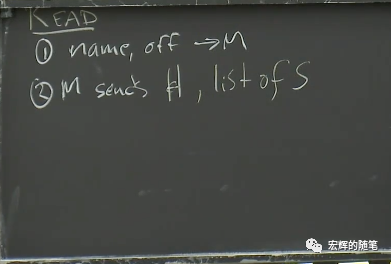 READ
① name, off →M
② M sends H, list of S
宏辉的随笔